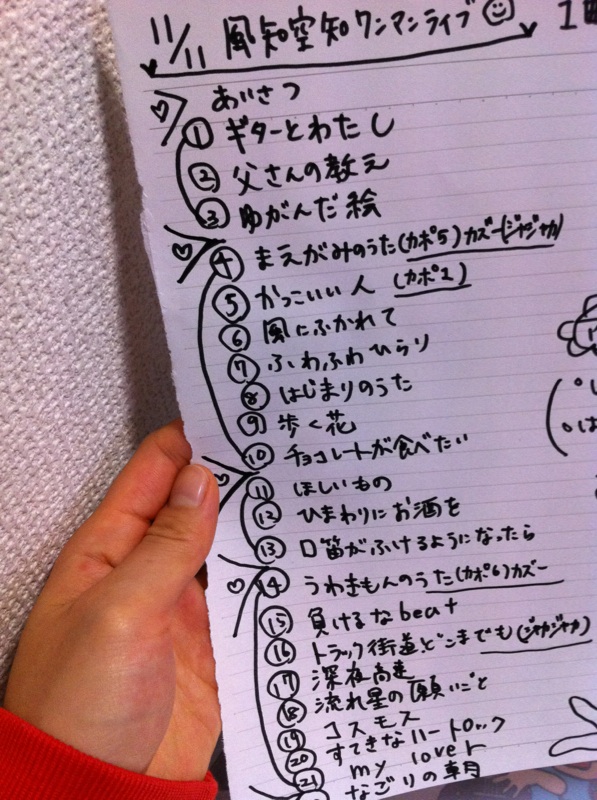 11/11 風知空知ワンマンライブ
あいさつ
① ギターとわたし
② 父さんの教え
③ ゆがんだ絵
④ まえがみのうた(カポ5)カズー(ジャジャカ)
⑤ かっこいい人 (カポ2)
⑥ 風にふかれて
⑦ ふわふわひらり
⑧ はじまりのうた
⑨ 歩く花
⑩ チョコレートが食べたい
⑪ ほしいもの
⑫ ひまわりにお酒を
⑬ 口笛がふけるようになったら
⑭ うわきもんのうた(カポ6)カズー
⑮ 負けるなbeat
⑯ トラック街道どこまでも(ジャカジャカ)
⑰ 深夜高速
⑱ 流れ星の願いごと
⑲ コスモス
⑳ すてきなハートロック
㉑ my lover
なごりの朝